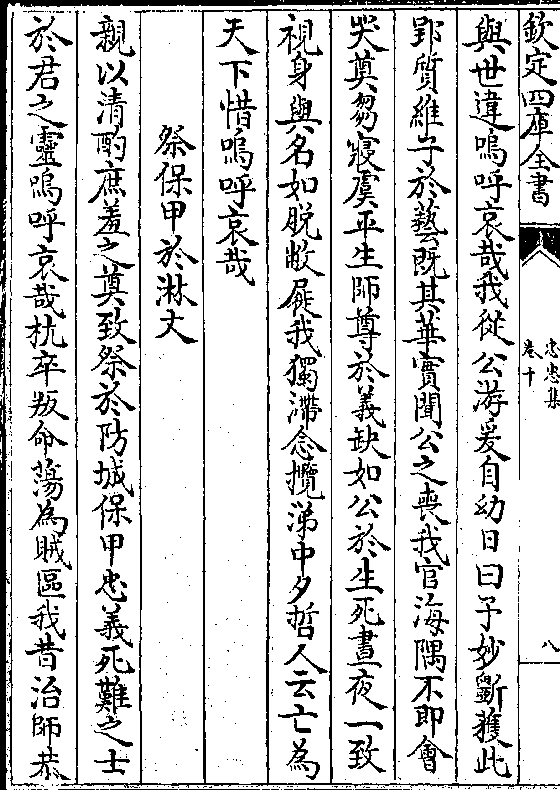 欽定四庫全書
忠惠集
卷十
八
與世違嗚呼哀哉我從公游爰自幼日曰子妙斵獲此
郢質維子於藝既其華實聞公之喪我官海隅不即會
哭奠芻寢虞平生師尊於義缺如公於生死晝夜一致
視身與名如脱敝屣我獨滯念攬涕中夕哲人云亡為
天下惜嗚呼哀哉
祭保甲於淋文
親以清酌庶羞之奠致祭於防城保甲忠義死難之士
於君之靈嗚呼哀哉杭卒叛命蕩為賊區我昔治師恭